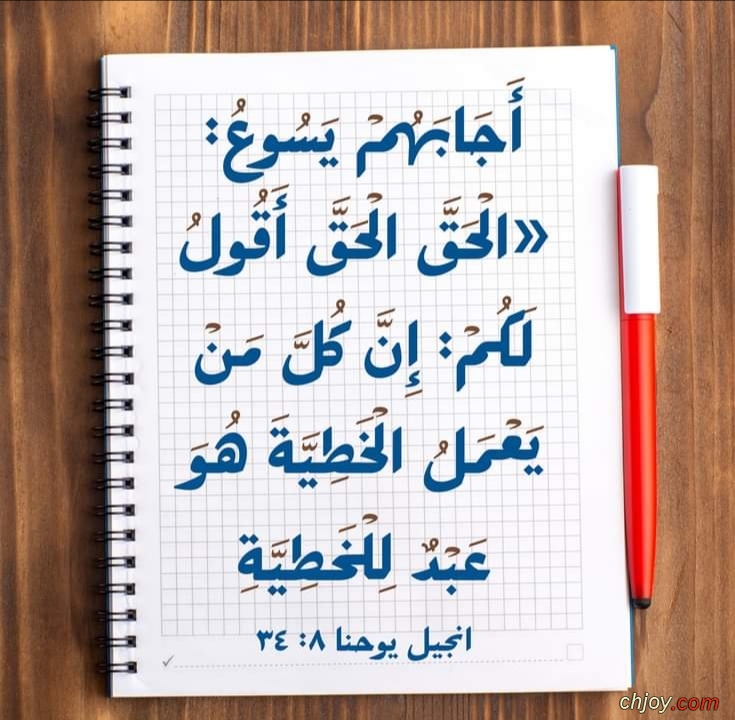 أَجَابَهُمْ يَسُوعُ:
«الْحَقَّ الْحَقَّ أَقُولُ
لَكُمْ: إِنَّ كُلَّ مَنْ
يَعْمَلُ الْخَطِيَّةَ هُوَ
عَبْدٌ لِلْخَطِيَّةِ
انجيل يوحنا ٨: ٣٤
chjoy.com